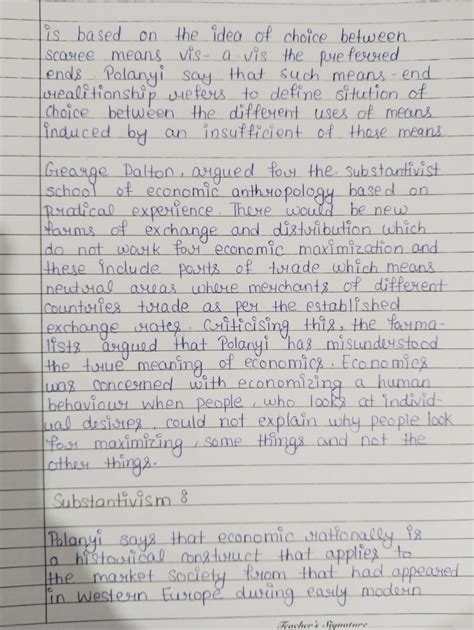 is based on the idea of choice between
scaree means vis-a-vis the preferred
ends. Polanyi say that such means-end
realitionship refers to define sitution of
choice between the different uses of means
induced by an insufficient of those means.
George Dalton, argued for the substantivist
school of economic anthropology based on
pratical experience. There would be new
forms of exchange and distribution which
do not work for economic maximization and
these include parts of trade which means
neutral areas where merchants of different
countries trade as per the established
exchange rates. Criticising this, the forma-
lists argued that Polanyi has misunderstood
the true meaning of economics. Economics
was concerned with economizing a human
behaviour when people, who looks at individ-
ual desires, could not explain why people look
for maximizing, some things and not the
other things.
Substantivism :
Polanyi says that economic rationally is
a historical construct that applies to
the market society from that had appeared
in Western Europe during early modern
Teacher's Signature